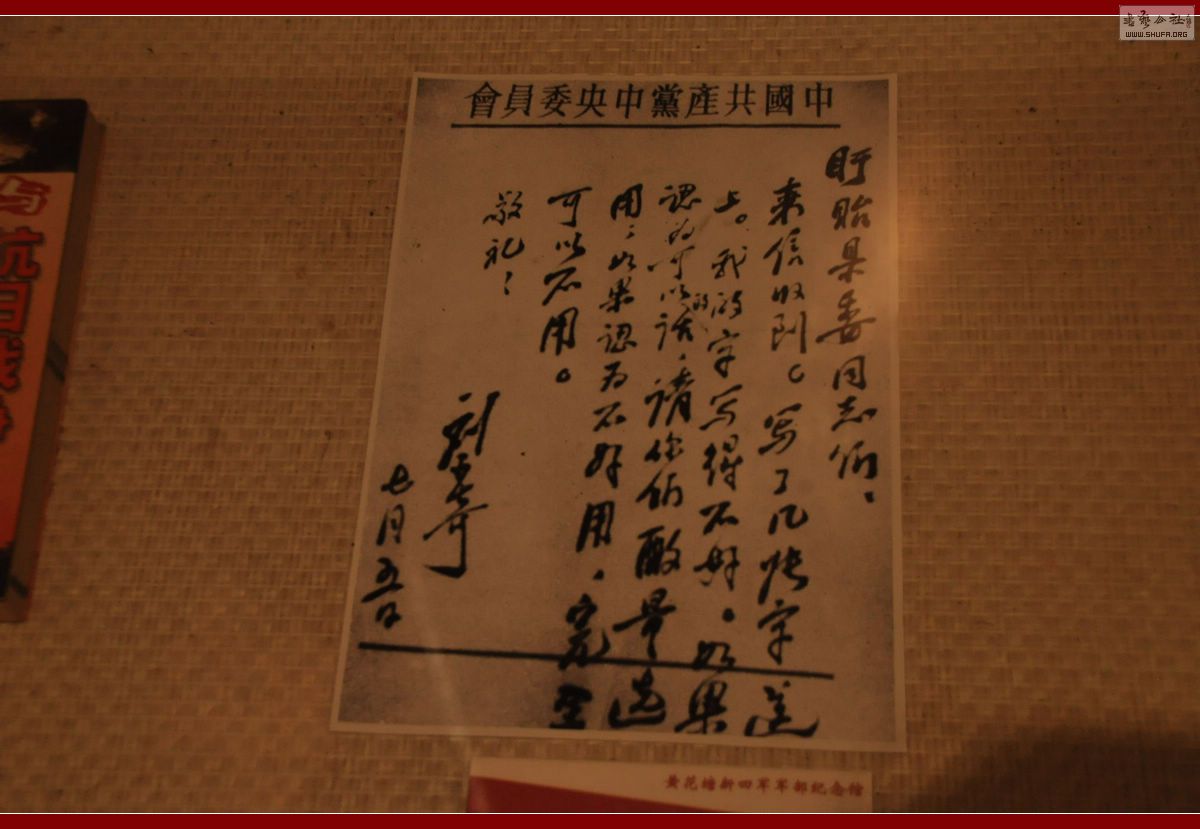 書艺公社
WWW.SHUFA.ORG
中國共產黨中央委員會
盱眙县委同志们：
来信收到。写了几张字送
上。我的字写得不好。如果
認为可以的话，請你们酌量选
用，如果認为不好用，完全
可以不用。
敬礼！
刘少奇
七月五日
与
抗日战争
黄花塘新四军军部纪念馆